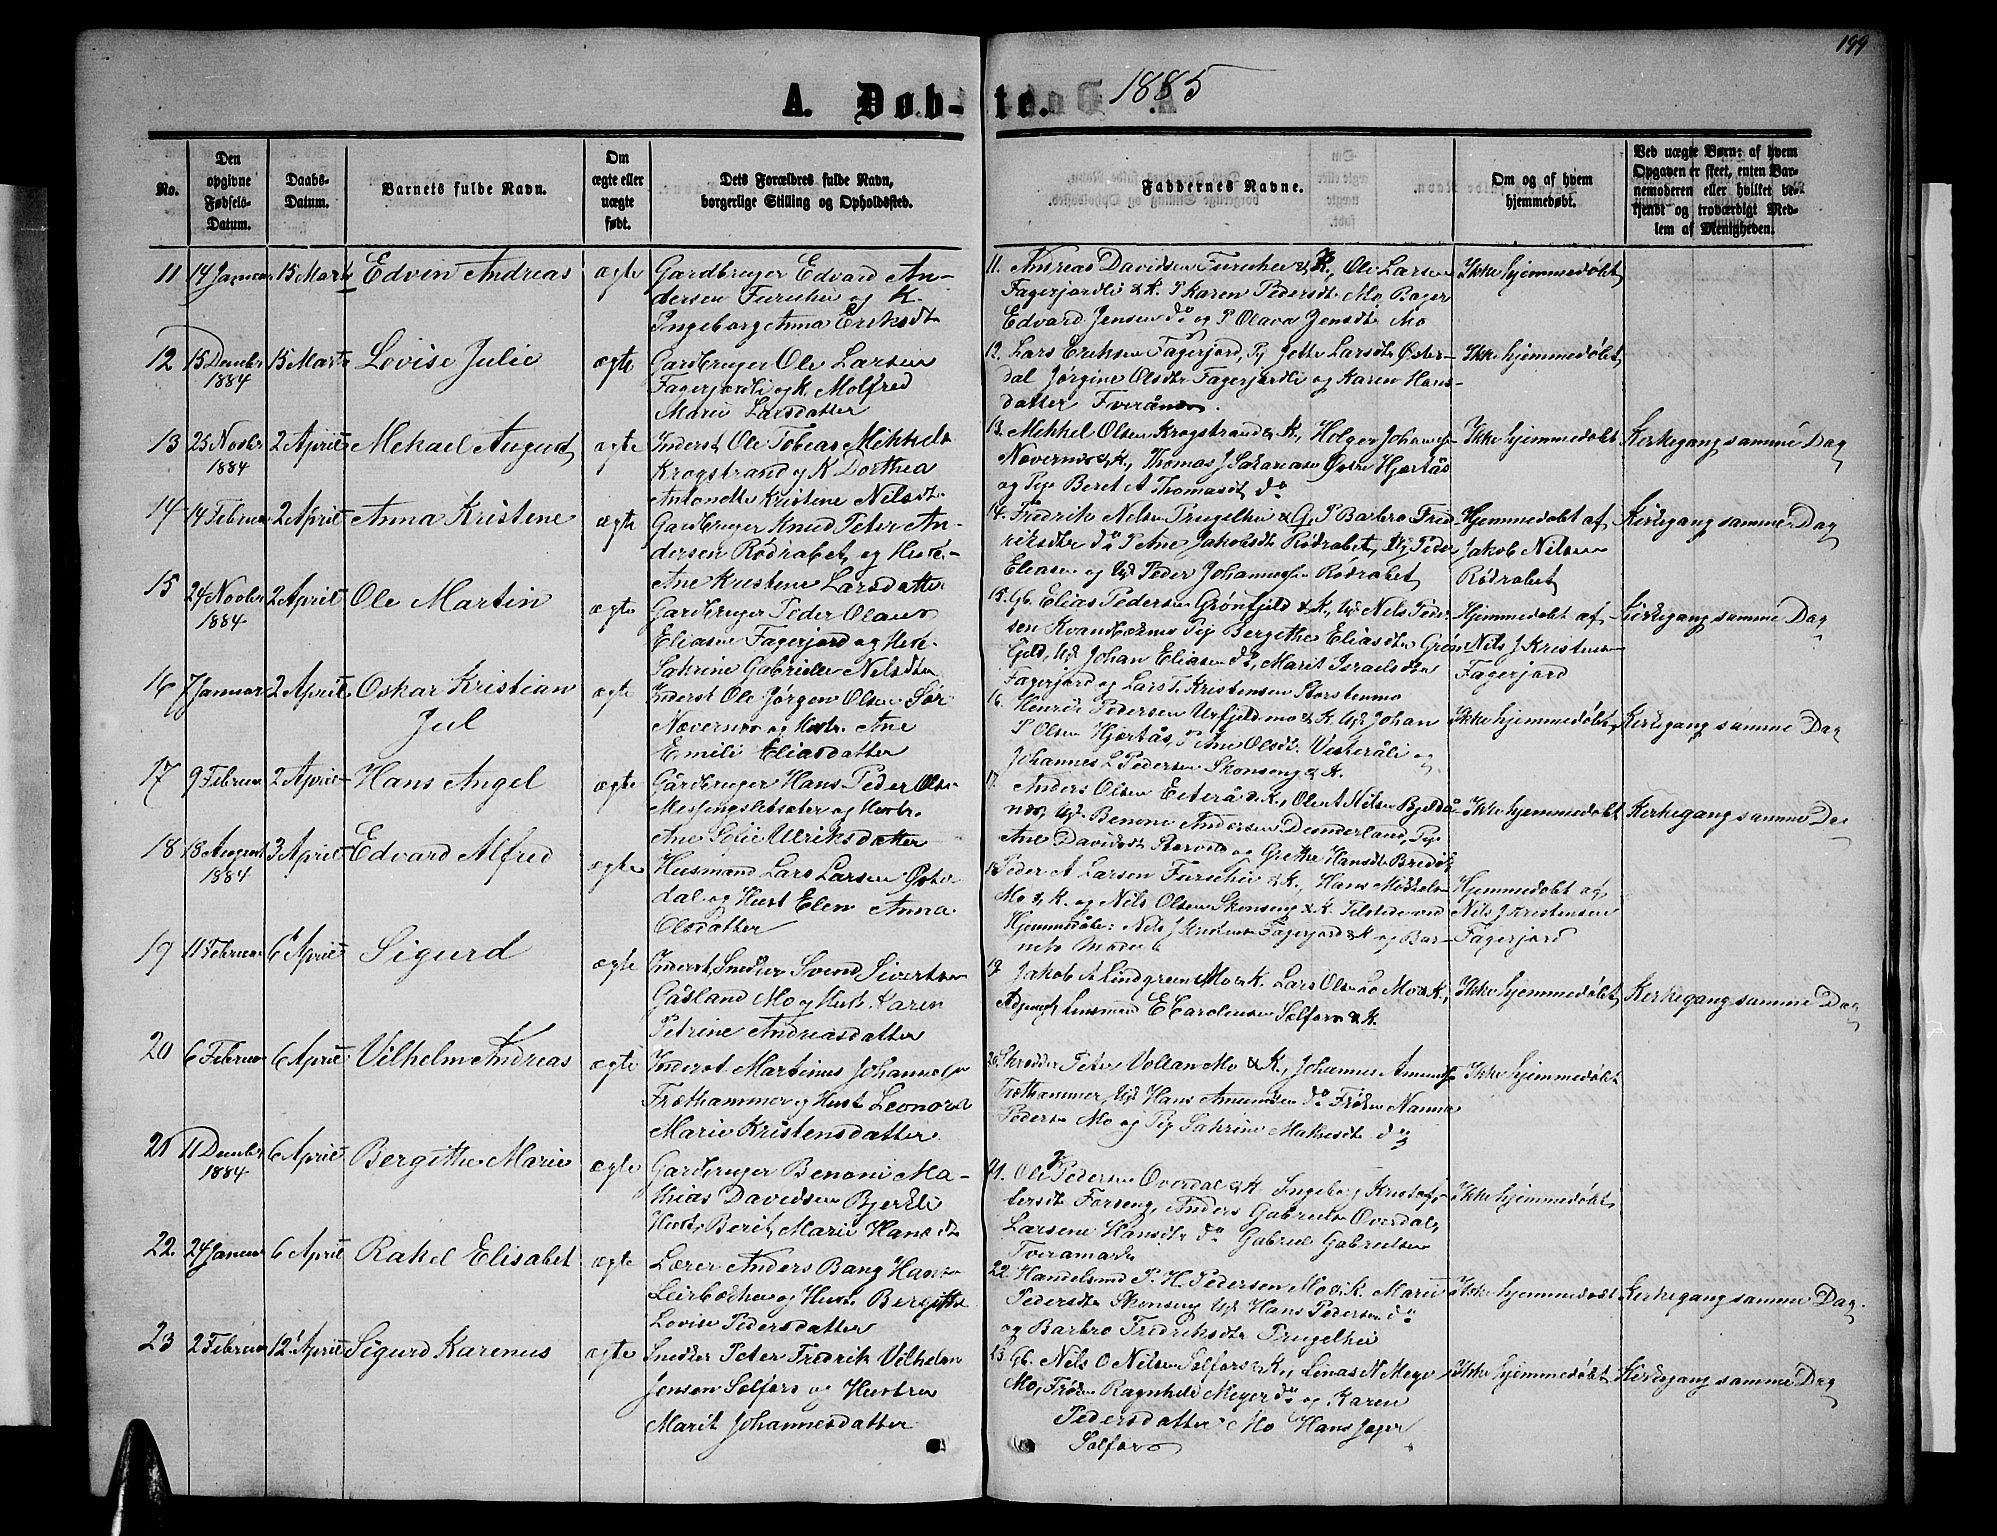 199
A. Døb-te. 1885
No.
Den opgivne Fødsels-Datum.
Daabs-Datum.
Barnets fulde Navn.
Om ægte eller uægte født.
Dets Forældres fulde Navn, borgerlige Stilling og Opholdssted.
Faddernes Navne.
Om og af hvem hjemmedøbt.
Ved uægte Børn: af hvem Opgaven er skeet, enten Barnemoderen eller hvilket vesendt og troværdigt Medlem af Menigheden.
11 14 Januar 15 Marts Edvin Andreas ægte Gardbruger Edvard An-
dersen Furuhei og K.
Ingeborg Anna Eriksdtr
11. Andreas Davidsen Furuhei & K., Ole Larsen
Fagerjordli & K. P Karen Pedersdt Mo, Bager
Edvard Jensen do og P Olava Jensdtr Mo
Ikke hjemmedøbt
12 15 Decmber 1884 15 Marts Lovise Julie ægte Gardbruger Ole Larsen
Fagerjordli og K. Molfred
Marie Larsdatter
12. Lars Eriksen Fagerjord, Pj Jette Larsdtr Øster-
dal Jørgine Olsdtr Fagerjordli og Karen Hans-
datter Tverånes.
Ikke hjemmedøbt
13 25 Novbr 1884 2 April Mekael August ægte Inderst Ole Tobias Mikkels
Krogstrand og K Dorthea
Antonette Kristene Nilsdtr
13. Mikkel Olsen Krogstrand & K., Holger Johans
Nævernes & K., Thomas J Sakariasen Østre Hjertås
og Pige Beret A Thomasdt do
Ikke hjemmedøbt
Kirkegang samme Dag
14 14 Februar 2 April Anna Kristene ægte Gardbruger Knud Peter An-
dersen Rødrabet og Hust.
Ane Kristene Larsdatter
14. Fredrik Nilsen Prugelhei & G, P Barbro Fred-
riksdtr do P Ane Jakobsdt Rødrabet, Uj Peder
Eliasen og Uj Peder Johannesen Rødrabet
Hjemmedøbt af
Jakob Nilsen
Rødrabet
Kirkegang samme Dag
15 24 Novbr 1884 2 April Ole Martin ægte Gardbruger Peder Olaus
Eliasen Fagerjord og Hust.
Sahrine Gabriella Nilsdtr
15. Gb. Elias Pedersen Grønfjeld & K., Uj Nils Peder-
sen Kvandbækmo Pige Bergithe Eliasdtr Grøn-
fjeld, Uj Johan Eliasen do, Marit Israelsdtr
Fagerjord og Lars T. Kristensen Storstenmo
Hjemmedøbt af
Nils J Kristensen
Fagerjord
Kirkegang samme Dag
16 7 Januar 2 April Oskar Kristian
Jul
ægte Inderst Ole Jørgen Olsen Sør
Nævernes og Hustr. Ane
Emili Eliasdatter
16. Henrik Pedersen Urfjeldmo & K. Uj Johan
P Olsen Hjertås, P Ane Olsdt. Vesteråli og
Johannes L Pedersen Skonseng & K.
Ikke hjemmedøbt
Kirkegang samme Dag
17 9 Februar 2 April Hans Angel ægte Gårdbruger Hans Peder Olsen
Messingsletsæter og Hustr.
Ane Golie Ulriksdatter
17. Anders Olsen Eiterå & K., Ole A Nilsen Bjeldå-
nes, Uj Benoni Andersen Dunderland, Pige
Ane Davidsdt Storvold og Grethe Hansdt Bredek
Ikke hjemmedøbt
Kirkegang samme Dag
18 18 August 1884 3 April Edvard Alfred ægte Husmand Lars Larsen Øster-
dal og Hust Elen Anna
Olsdatter
18. Peder A Larsen Furuhei & K., Hans Mikkelsen
Mo & K. og Nils Olsen Skonseng & K. Tilstede ved
Hjemmedåb: Nils J Kristensen Fagerjord & K og Bar-
nets Moder
Hjemmedøbt af
Nils J Kristensen
Fagerjord
19 11 Februar 6 April Sigurd ægte Inderst, Smed Svend Sivertsen
Gåsland Mo og Hust. Karen
Petrine Andreasdatter
19. Jakob A Lindgreen Mo & K. Lars Olsen Mo & K.,
Lensmand E Carolinsen Selfors & K.
Ikke hjemmedøbt
Kirkegang samme Dag
20 6 Februar 6 April Vilhelm Andreas ægte Inderst Martinus Johannesen
Træthammer og Hust Leonore
Marie Kristensdatter
20. Skredder Peter Vollan Mo & K., Johannes Amundsen
Træthammer, Uj Hans Amundsen do Frøken Nanna
Peders Mo og Pige Sahrine do
Ikke hjemmedøbt
21 11 Decmber 1884 6 April Bergithe Marie ægte Gardbruger Benoni Ma-
thias Davidsen Bjerkli
Hust. Berit Marie Hansdt
21. Ole Pedersen Overdal & K. Ingeborg Kristof-
fersdt Forseng, Anders Gabrielsen Overdal,
Larsene Hansdtr do Gabriel Gabrielsen
Tveramark
Ikke hjemmedøbt
22. 24 Januar 6 April Rakel Elisabet ægte Lærer Anders Bang Hansen
Leirbækhei og Hust. Bergitte
Lovise Pedersdatter
22. Handelsmd P. H. Pedersen Mo & K. Marie
Pedersdt Skonseng Uj Hans Pedersen do
og Barbro Fredriksdtr Prugelhei
Ikke hjemmedøbt
Kirkegang samme Dag.
23 2 Februar 12 April Sigurd Karenus ægte Smeder Peter Fredrik Vilhelm
Jenson Selfors og Hustru
Marit Johannesdatter
23. Gb. Nils O Nilsen Selfors & K., Linas N Meyer
Mo, Frøken Ragnhild Meyer do og Karen
Pedersdatter Mo Hans Jager
Selfors
Ikke hjemmedøbt
Kirkegang samme Dag